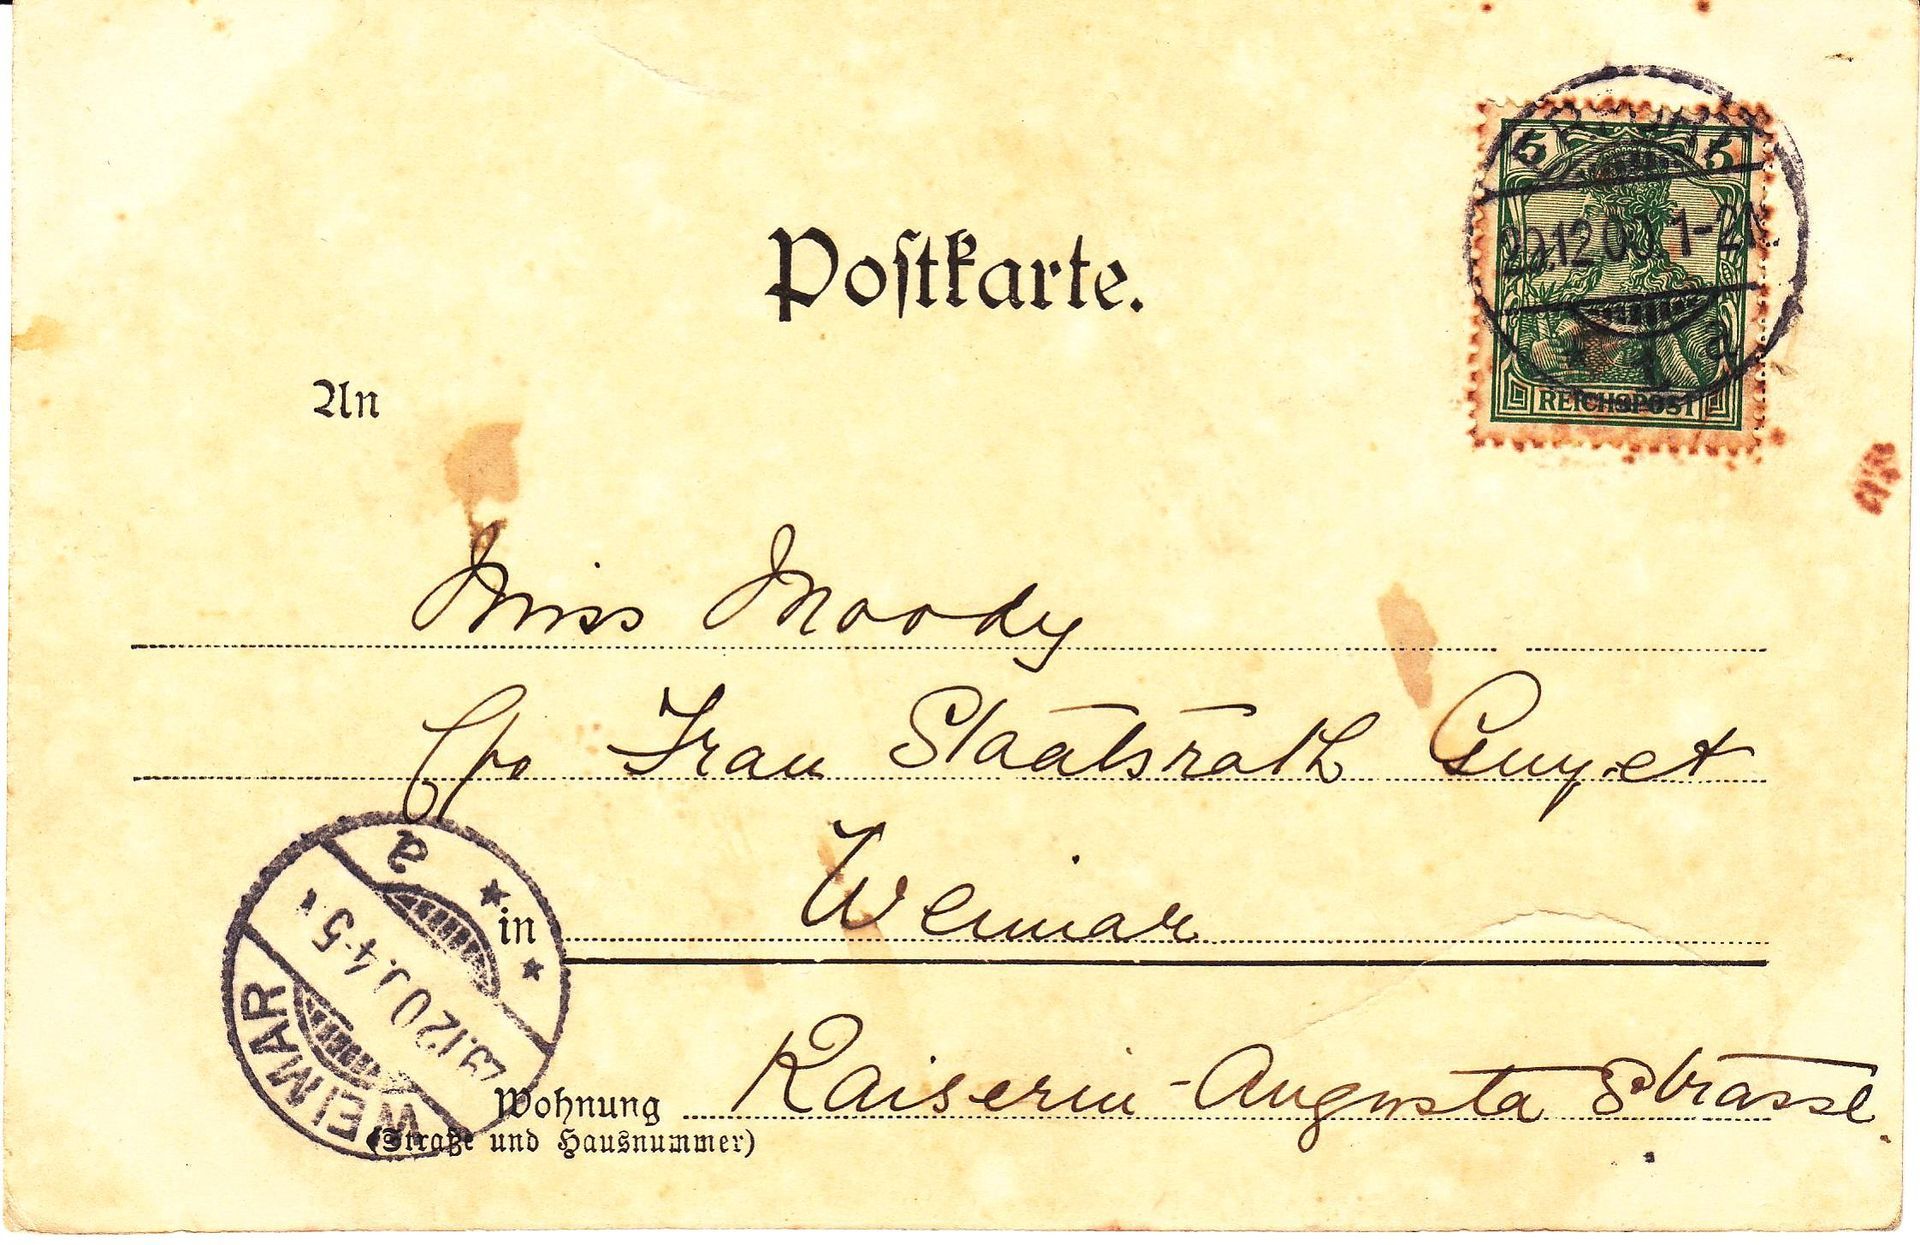 Postkarte.
5 5
29.12.00. 1-2N.
REICHSPOST
An
Miss Moody
c/o Frau Staatsrath Guyet
in Weimar
Wohnung Kaiserin-Augusta Strasse.
(Straße und Hausnummer)
WEIMAR
29.12.00. 4-5
a